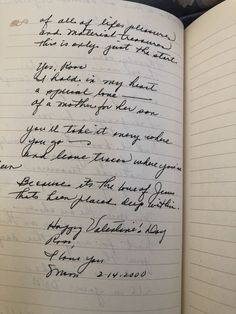 of all of lifes pleasures
and material treasures
this is only just the start.
Yes, Ross
I hold in my heart
a special love
of a mother for her son
you'll take it every where
you go
and leave traces where you've
een
Because its the love of Jesus
thats been placed deep within.
Happy Valentine's Day
Ross,
I love you
Mom 2-14-2000